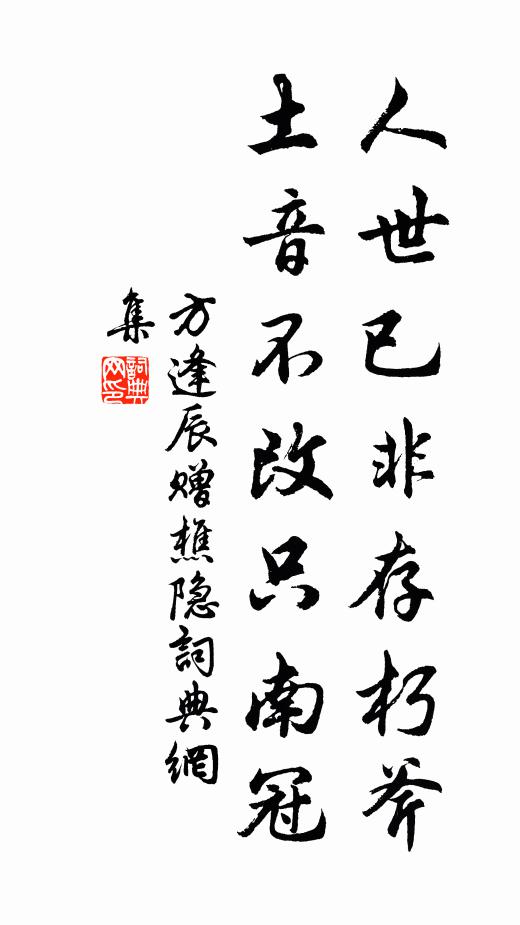 人世已非存朽斧
土音不改只南冠
方逢辰赠樵隐詞典網
集
詞典网印